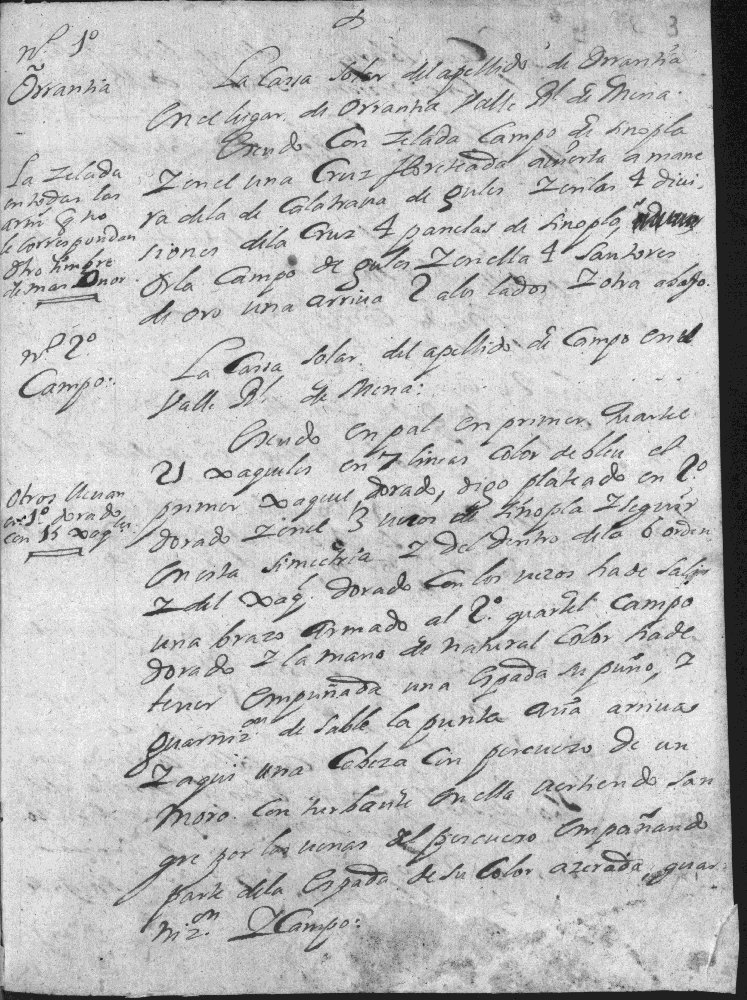 3
nº. 1º
Orrantia
La Cassa Solar del apellido de Orrantia
en el lugar de Orrantia Valle Rl de Mena.
Escudo Con zelada Campo de sinopla
Y en el una Cruz floreteada abierta a mane
ra de la de Calatraua de gules Y en las 4 diui-
siones de la Cruz 4 panelas de sinopla
Orla Campo de gules Y en ella 4 Santores
de oro una arriua 2 a los lados Y otra abajo.
La zelada
en todas las
arms. q no
le correspondan
otro timpre
de mas Onor
nº 2º
Campo:
La Cassa Solar del apellido de Campo en el
Valle Rl de Mena:
Escudo en pal en primer quartel
21 xaqueles en 7 lineas Color de bleu el
primer xaquel, dorado, digo plateado en 2º
dorado Y en el 3 ueros de sinopla Y seguir
en esta simechria Y del dentro de la 6 orden
Y del xaql. dorado Con los ueros ha de salir
una brazo armado al 2º. quartel campo
dorado Y la mano de natural Color ha de
tener empuñada una espada su puño, Y
guarniz.on de sable la punta acia arriua
Y aqui una Cabeza Con pescuezo de un
moro. Con turbante en ella uertiendo san
gre por las uenas del pescuezo empañando
parte de la espada de su Color azerada, guar
niz.on Y Campo:
Otros lleuan
en 1º. dorado
con 15 xaqles.